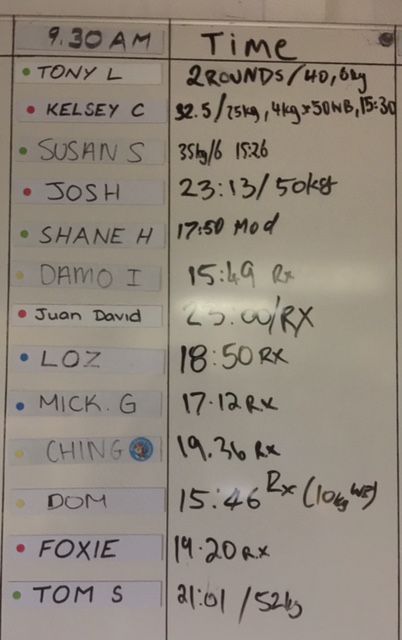 9.30 AM Time
TONY L 2 ROUNDS / 40, 6kg
KELSEY C 32.5 / 25kg, 4kg x 50 WB, 15:30
SUSAN S 35kg/6 15:26
JOSH 23:13 / 50kg
SHANE H 17:50 Mod
DAMO I 15:49 Rx
Juan David 23:00/RX
LOZ 18:50 RX
MICK. G 17.12 RX
CHING 19.36 Rx
DOM 15:46 Rx (10kg WB)
FOXIE 19.20 RX
TOM S 21:01 / 52kg